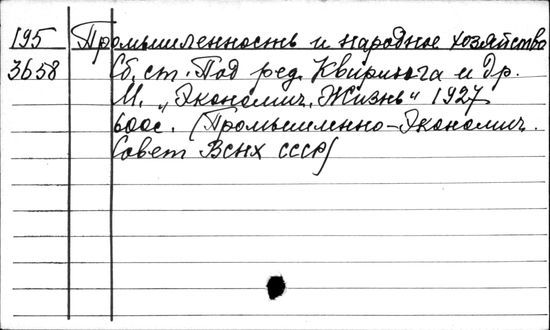 195 Промышленность и народное хозяйство
3658 Сб. ст. Под ред. Квиринга и др.
М. „Экономич. Жизнь" 1927
600с. (Промышленно-Экономич.
Совет ВСНХ СССР)